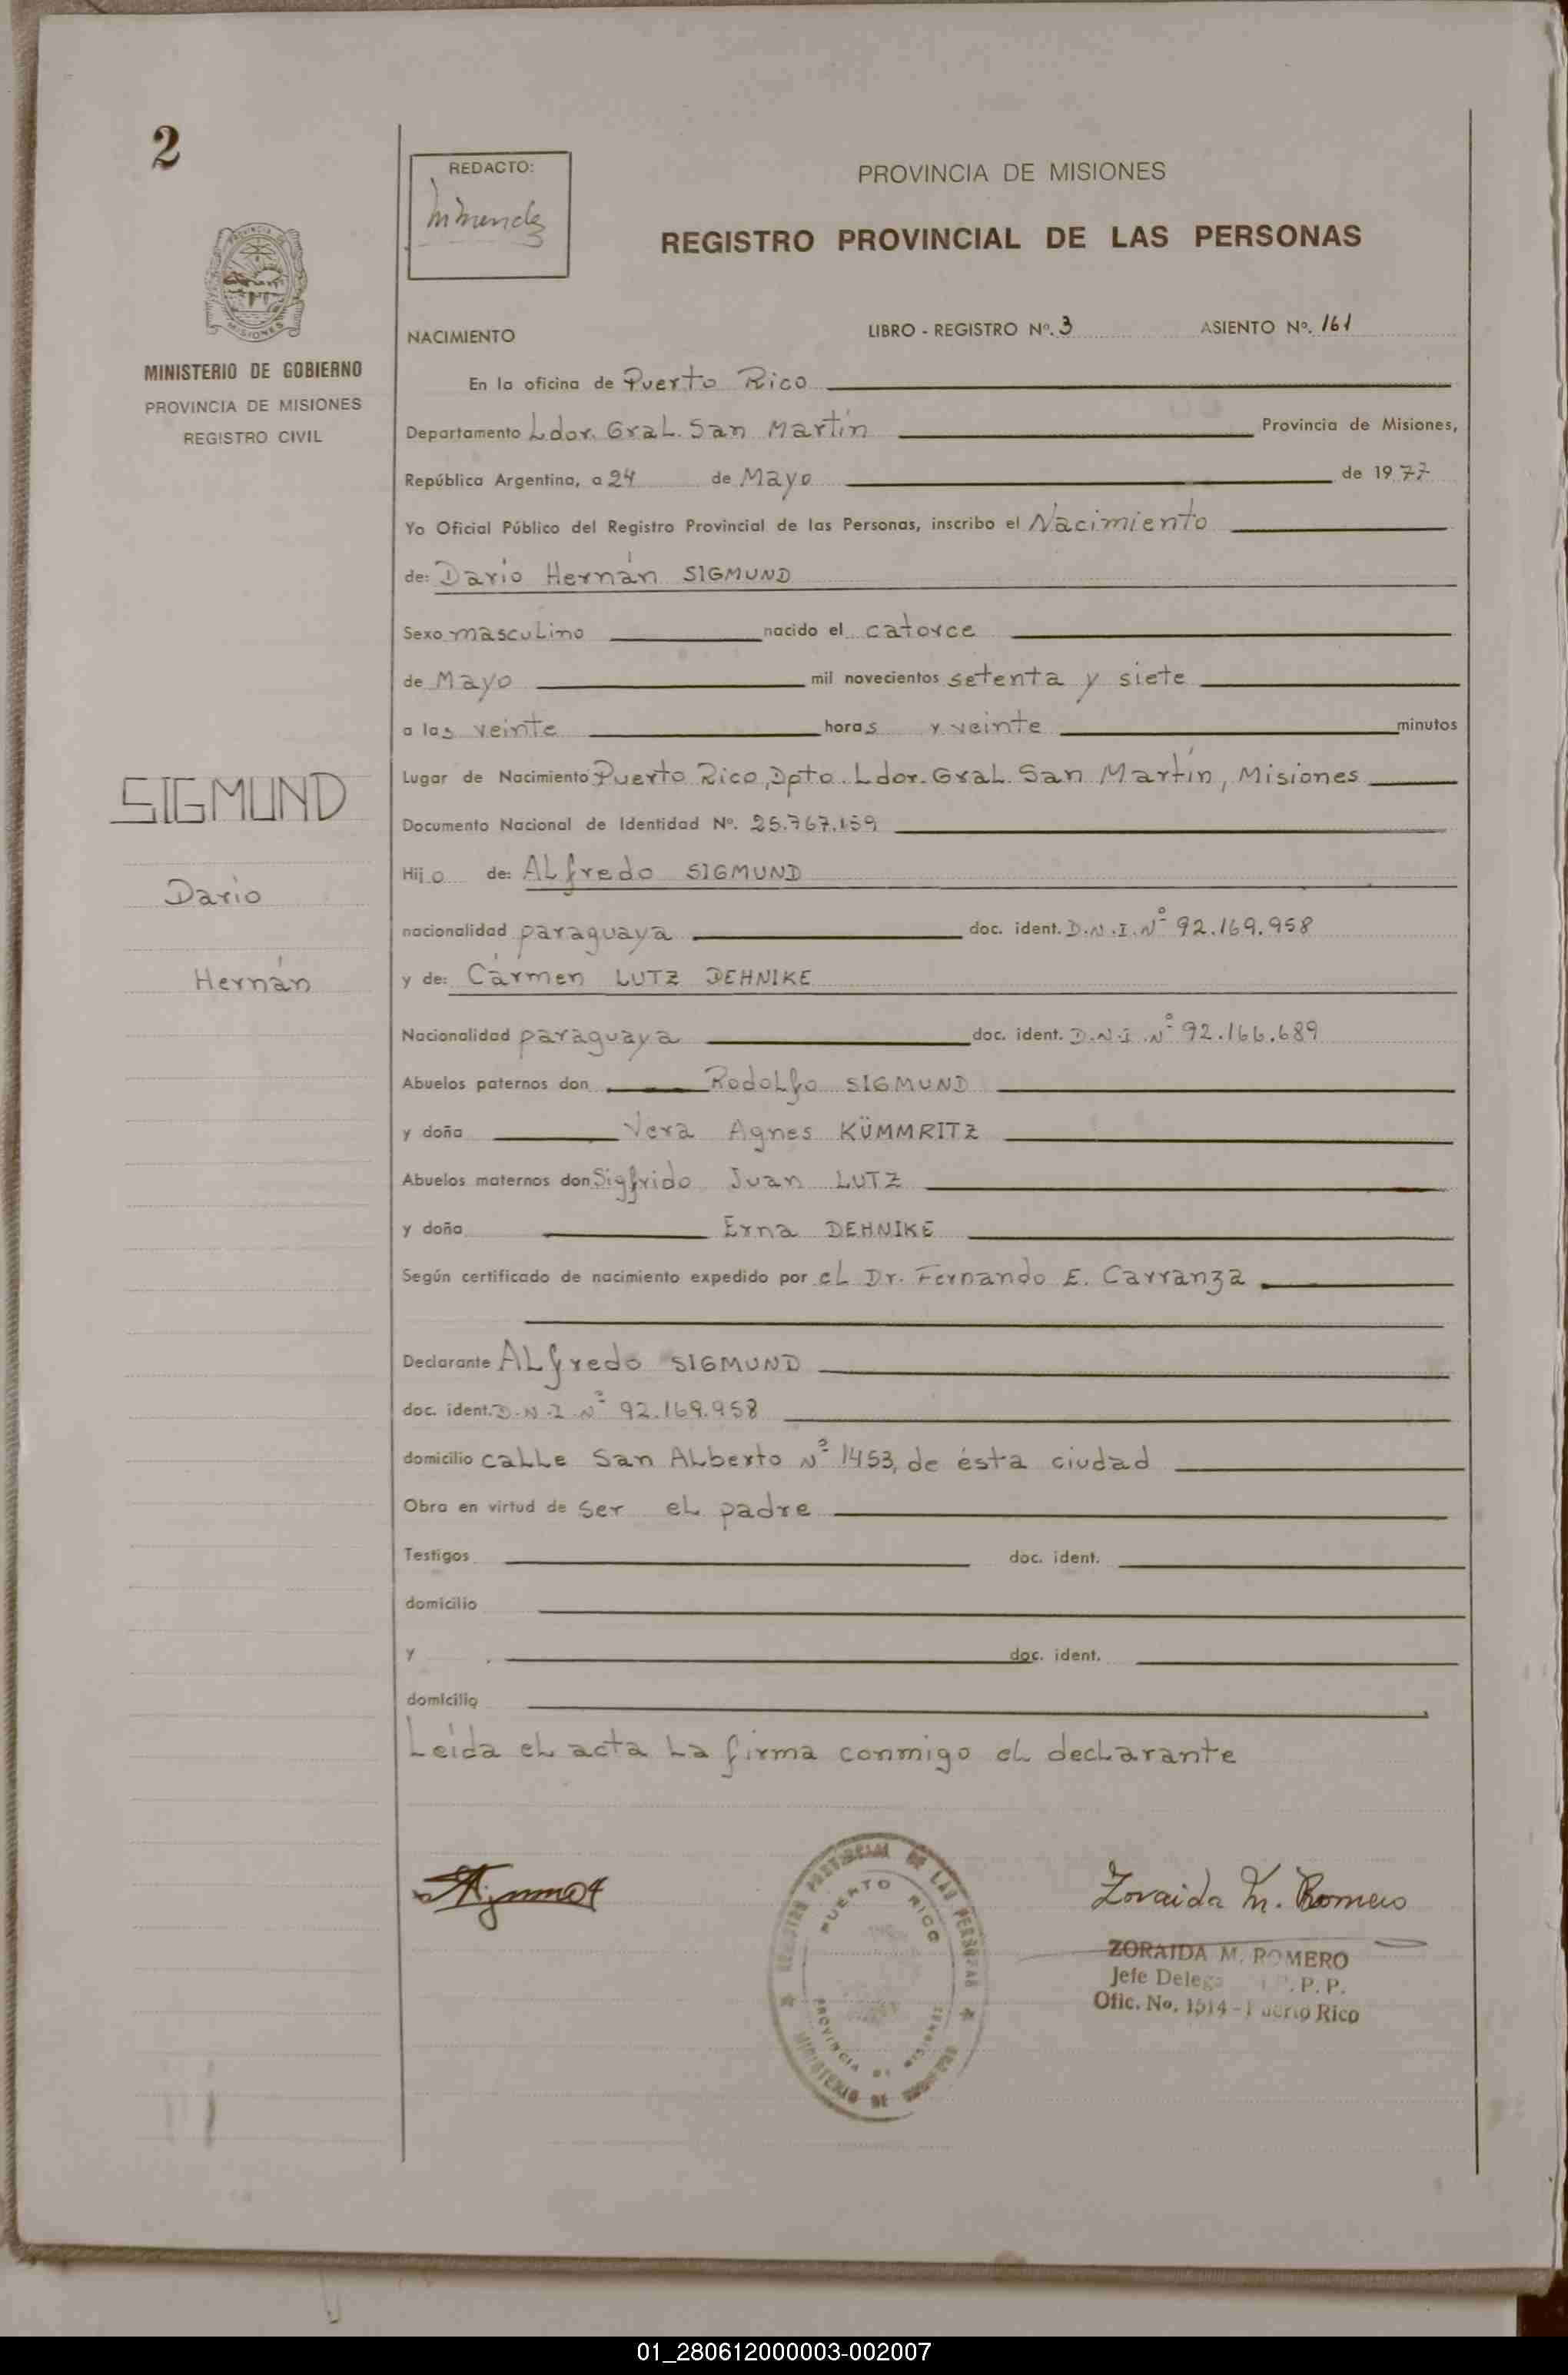 2
REDACTO:
PROVINCIA DE MISIONES
REGISTRO PROVINCIAL DE LAS PERSONAS
MINISTERIO DE GOBIERNO
PROVINCIA DE MISIONES
REGISTRO CIVIL
NACIMIENTO LIBRO - REGISTRO Nº. 3 ASIENTO Nº. 161
En la oficina de Puerto Rico
Departamento Ldor. Gral. San Martín Provincia de Misiones,
República Argentina, a 24 de Mayo de 1977
Yo Oficial Público del Registro Provincial de las Personas, inscribo el Nacimiento
de: Darío Hernán SIGMUND
Sexo masculino nacido el catorce
de Mayo mil novecientos setenta y siete
a las veinte horas y veinte minutos
Lugar de Nacimiento Puerto Rico, Dpto. Ldor. Gral. San Martín, Misiones
SIGMUND
Darío
Hernán
Documento Nacional de Identidad Nº. 25.767.159
Hijo de: Alfredo SIGMUND
nacionalidad paraguaya doc. ident. D.N.I. Nº 92.169.958
y de: Cármen LUTZ DEHNIKE
Nacionalidad paraguaya doc. ident. D.N.I. Nº 92.166.689
Abuelos paternos don Rodolfo SIGMUND
y doña Vera Agnes KÜMMRITZ
Abuelos maternos don Sigfrido Juan LUTZ
y doña Erna DEHNIKE
Según certificado de nacimiento expedido por el Dr. Fernando E. Carranza
Declarante Alfredo SIGMUND
doc. ident. D.N.I. Nº 92.169.958
domicilio calle San Alberto Nº 1453, de ésta ciudad
Obra en virtud de ser el padre
Testigos doc. ident.
domicilio
y doc. ident.
domicilio
Leída el acta la firma conmigo el declarante
REGISTRO PROVINCIAL DE LAS PERSONAS
PUERTO RICO
PROVINCIA DE MISIONES
MINISTERIO DE GOBIERNO
Zoraida M. Romero
ZORAIDA M. ROMERO
Jefe P.P.
Ofic. No. 1514 - Puerto Rico
01_280612000003-002007